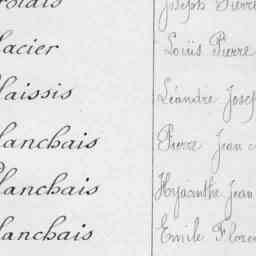 Joseph Pierre
lacier Loüis Pierre
laissis Léandre Josef
lanchais Pierre Jean
Planchais Hyacinthe Jean
lanchais Emile Floren